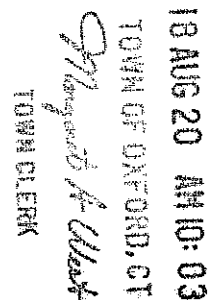 18 AUG 20 AM 10: 03
TOWN OF OXFORD, CT
Margaret A. West
TOWN CLERK